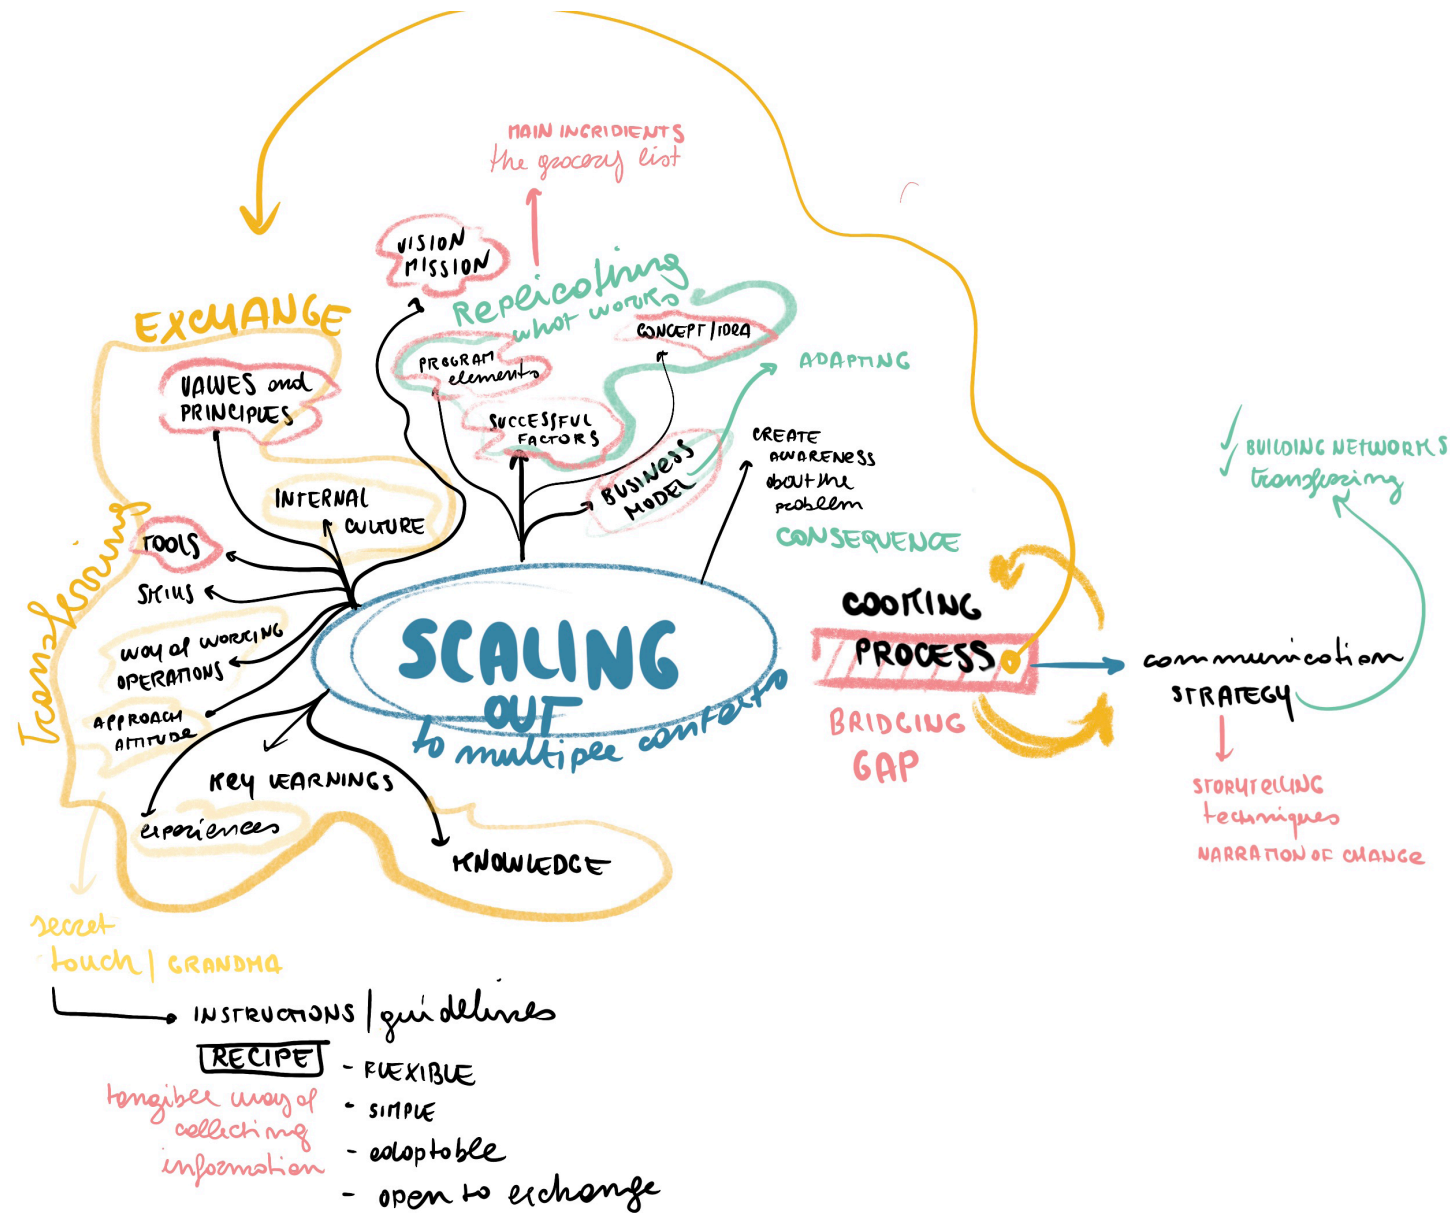 MAIN INGRIDIENTS
the grocery list
VISION
MISSION
Replicathing
what works
EXCHANGE
CONCEPT/IDEA
PROGRAM
elements
ADAPTING
VALUES and
PRINCIPLES
SUCCESSFUL
FACTORS
BUSINESS
MODEL
CREATE
AWARENESS
about the
problem
CONSEQUENCE
BUILDING NETWORKS
transfering
INTERNAL
CULTURE
Transferring
TOOLS
SKILLS
way of WORKING
OPERATIONS
APPROACH
ATTITUDE
SCALING
OUT
to multiple contexts
COOKING
PROCESS
BRIDGING
GAP
communication
STRATEGY
STORYTELLING
techniques
NARRATION OF CHANGE
Key LEARNINGS
experiences
KNOWLEDGE
secret
touch | GRANDMA
INSTRUCTIONS | guidelines
RECIPE
- FLEXIBLE
- SIMPLE
- adaptable
- open to exchange
tangible way of
collecting
information